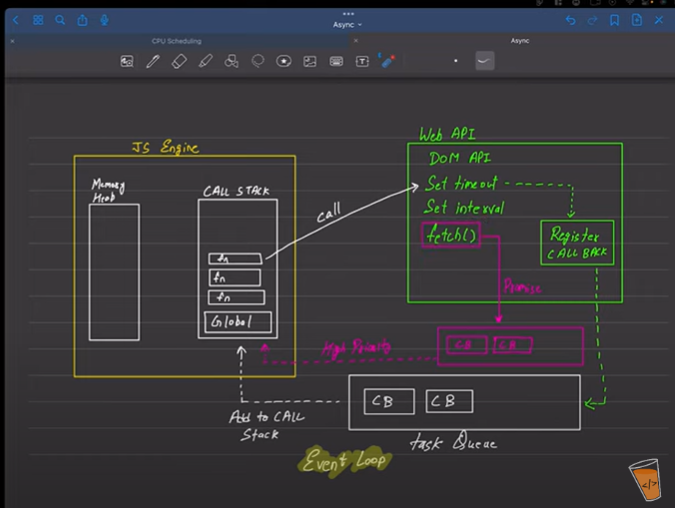 Async
CPU Scheduling
Async
JS Engine
Memory
Heap
CALL STACK
fn
fn
fn
Global
call
Web API
DOM API
Set timeout
Set interval
fetch()
Register
CALL BACK
Promise
CB
CB
High Priority
CB
CB
Add to CALL
Stack
task Queue
Event Loop
</>